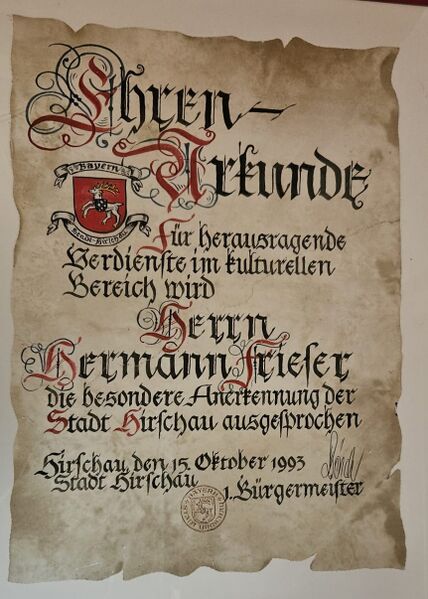 Ehren-
Urkunde
Bayern
Stadt Hirschau
Für herausragende
Verdienste im kulturellen
Bereich wird
Herrn
Hermann Frieser
die besondere Anerkennung der
Stadt Hirschau ausgesprochen
Hirschau, den 15. Oktober 1993
Stadt Hirschau
1. Bürgermeister